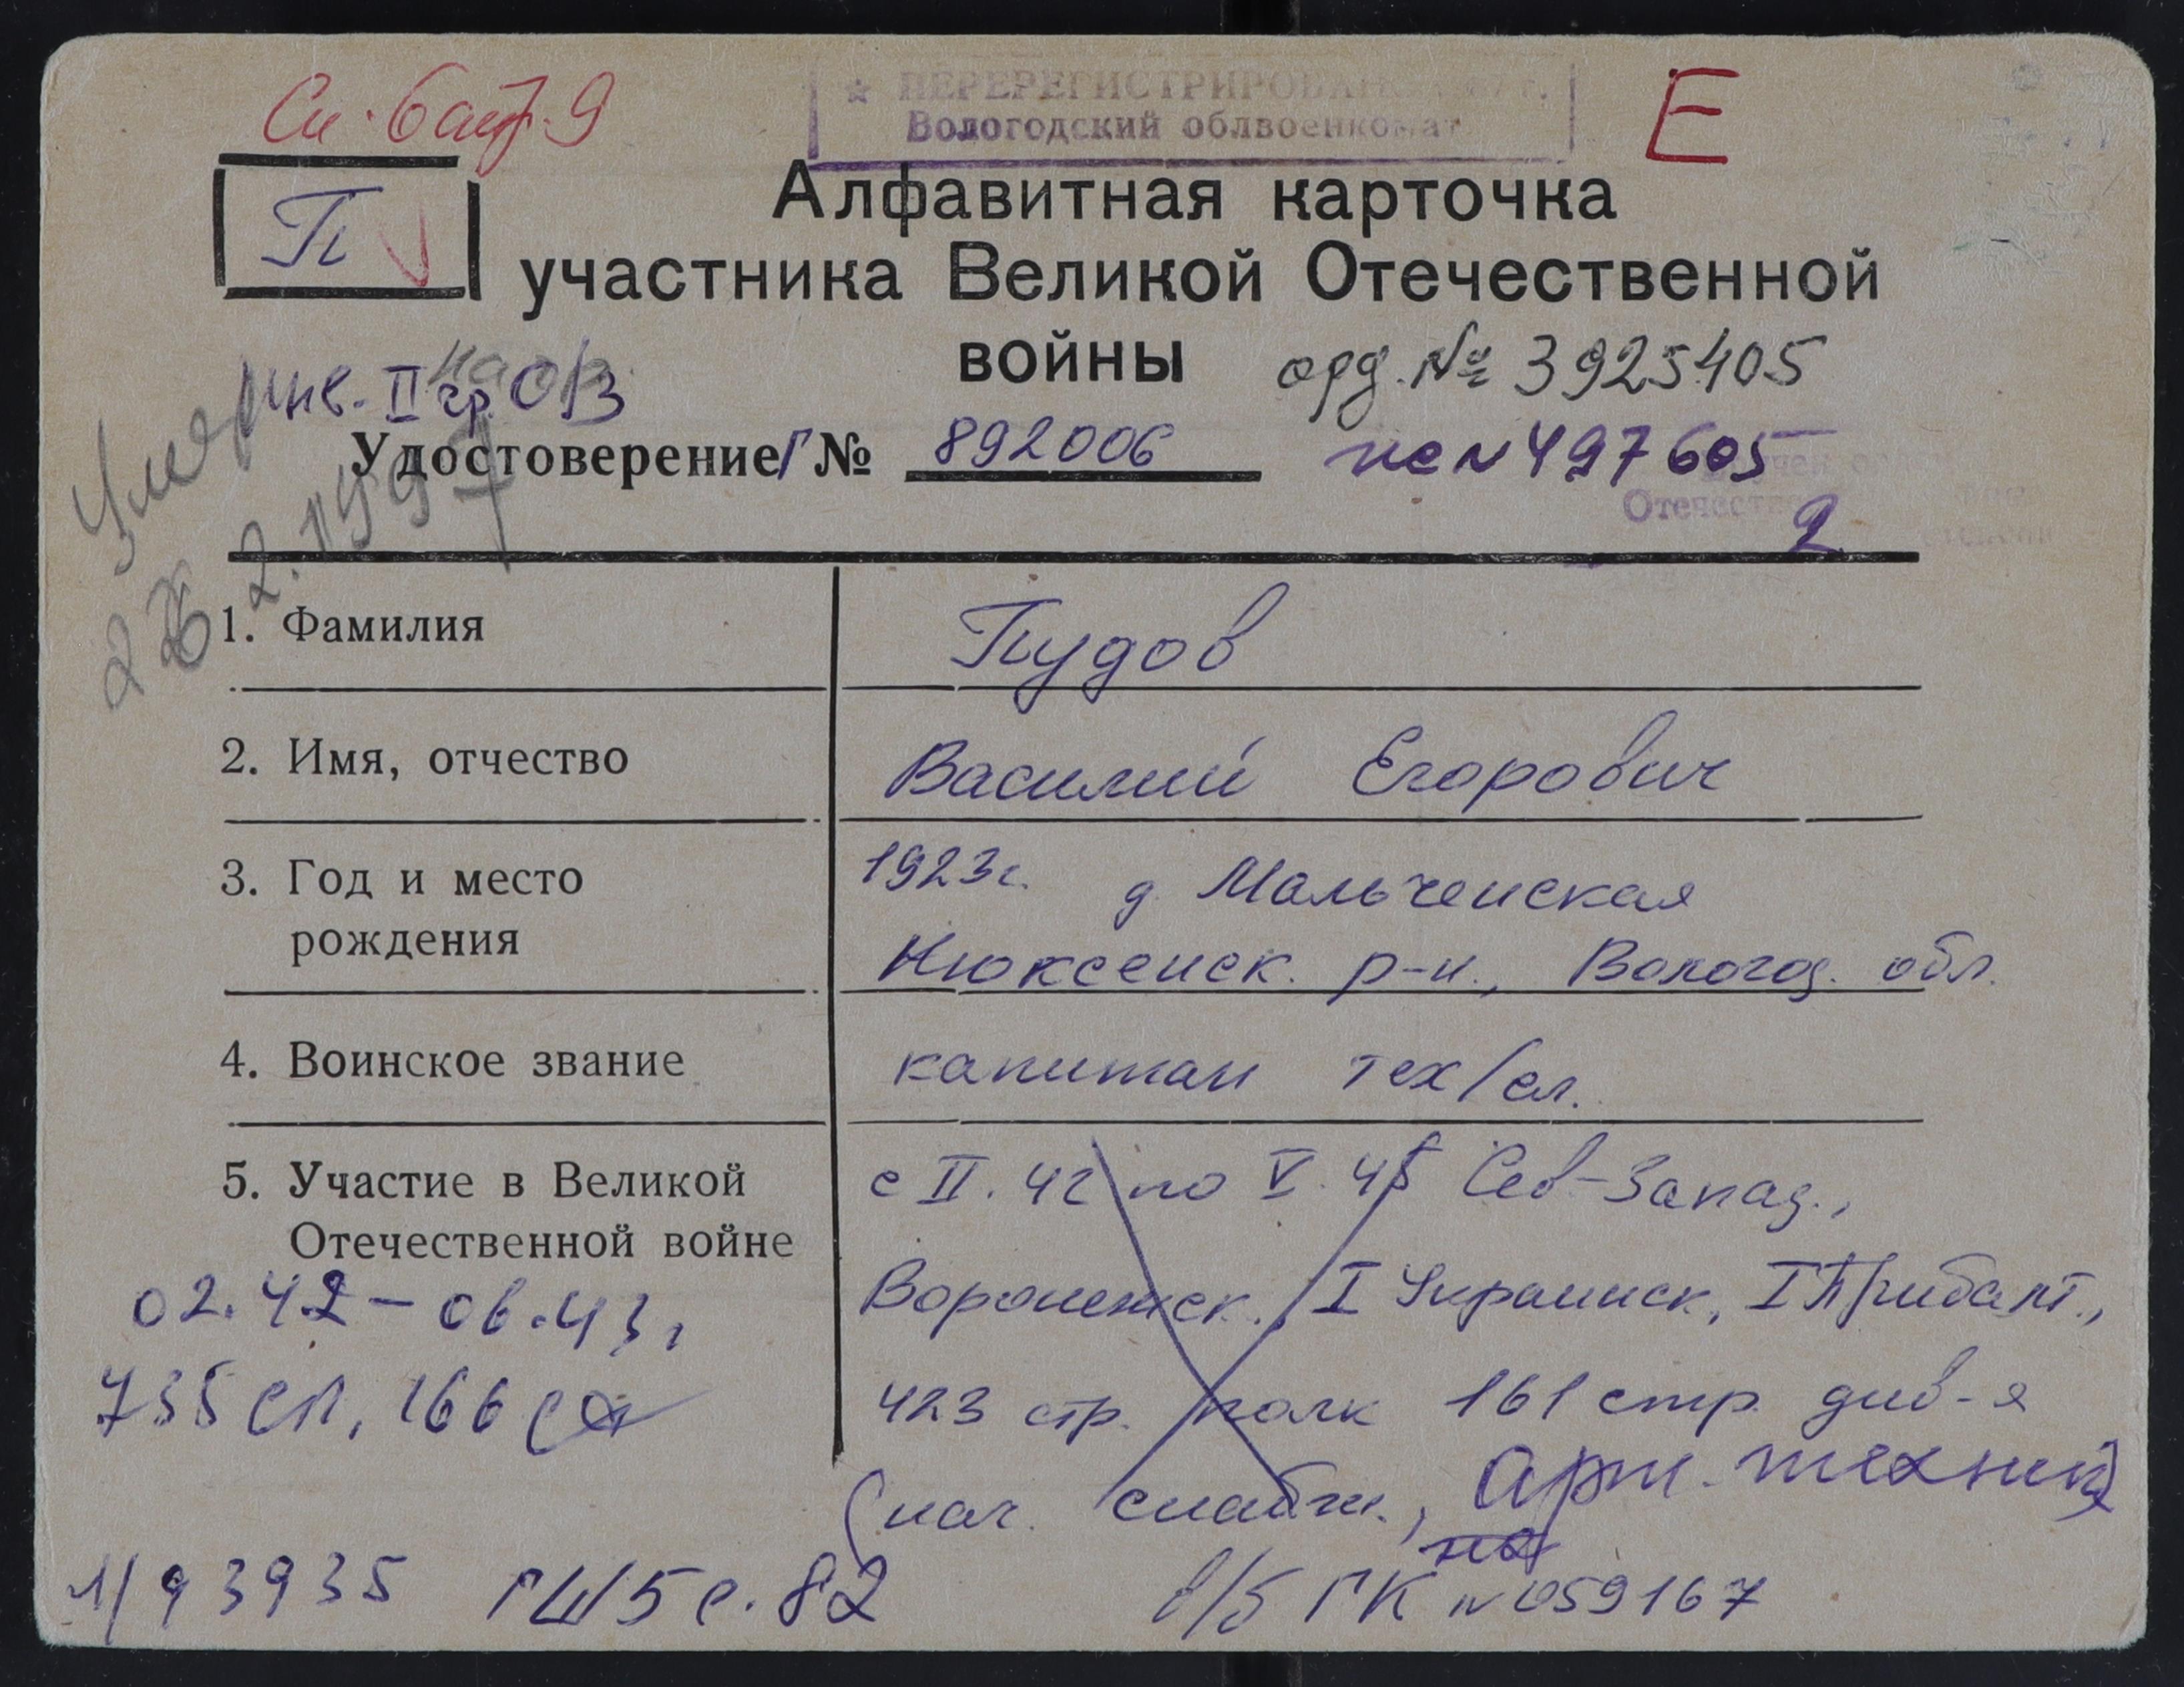 Сн. бат. 9
ПЕРЕРЕГИСТРИРОВАН
Вологодский облвоенкомат
Е
П
Алфавитная карточка
участника Великой Отечественной
войны
орд. № 3925405
инв. II гр. О/З
Умер
26.2.1997
Удостоверение/Г № 892006
не № 497605
Отечеств
2
1. Фамилия Пудов
2. Имя, отчество Василий Егорович
3. Год и место 1923г. д. Мальченская
рождения Нюксенск. р-н., Вологод. обл.
4. Воинское звание капитан тех/сл.
5. Участие в Великой с II.42 по V.45 Сев-Запад.,
Отечественной войне
Воронежск., I Украинск, I Прибалт.,
02.42 – 06.43г
423 стр. полк 161 стр. див-я
735 сп, 166 сд
(нач. снабж., Арт. техник)
1/93935 ГШ 5 с. 82
в/б ГК № 059167